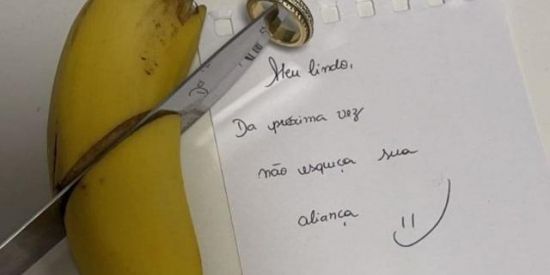 Meu lindo,
Da próxima vez
não esqueça sua
aliança